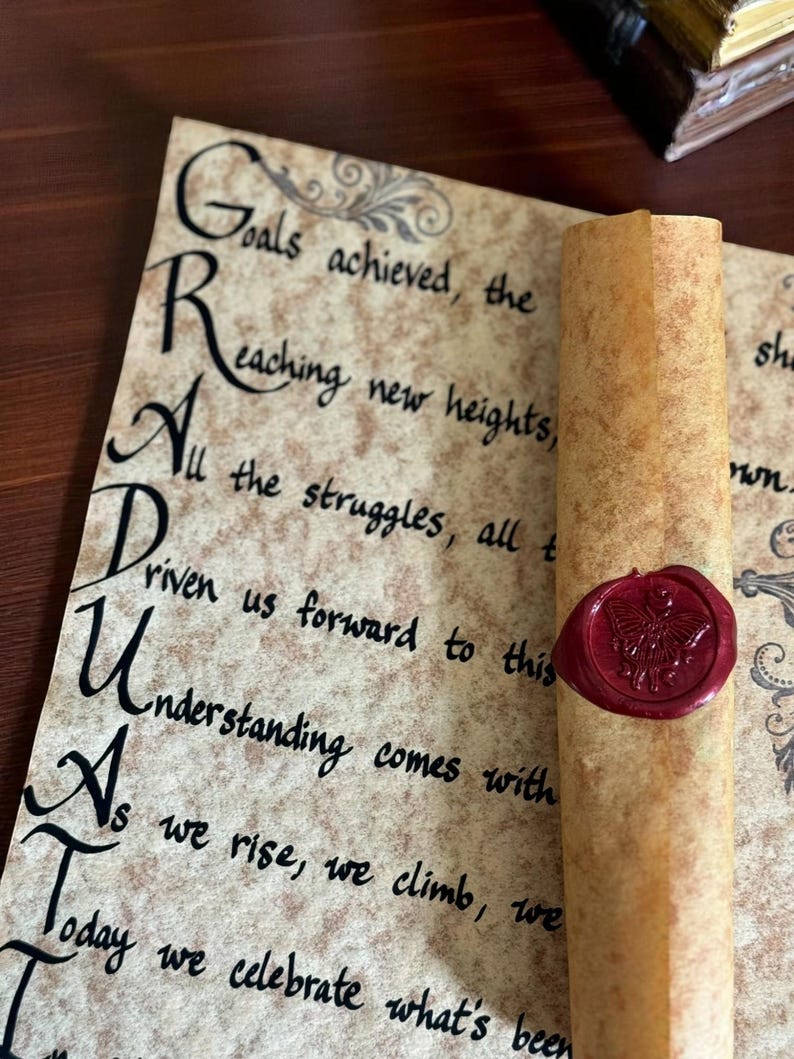 Goals achieved, the
Reaching new heights,
sh
All the struggles, all t
own.
Driven us forward to this
Understanding comes with
As we rise, we climb, we
Today we celebrate what's been
In